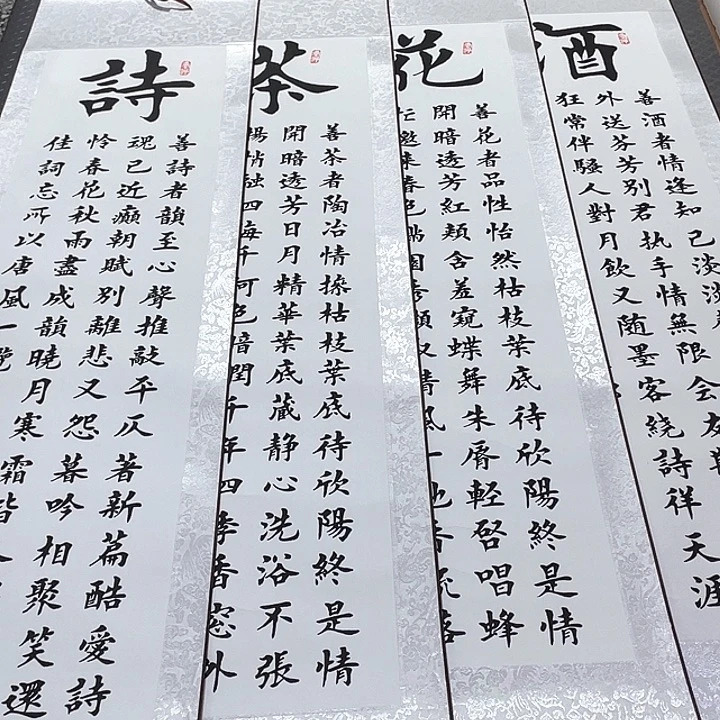 酒
善酒者情逢知己淡淡
外送芬芳別君执手情無限会友
狂常伴騷人對月飲又随墨客繞詩祥天涯
花
善花者品性怡然枯枝葉底待欣陽終是情
開暗透芳紅頰含羞窺蝶舞朱唇輕启唱蜂
忙邀来春色
茶
善茶者陶冶情操枯枝葉底待欣陽終是情
開暗透芳日月精華葉底蔵静心洗浴不張
揚悄融四海千河色暗閏千年四季香窓外
詩
善詩者韻至心聲推敲平仄著新篇酷愛詩
魂已近癲朝賦別離悲又怨暮吟相聚笑還
怜春花秋雨盡成韻曉月寒霜皆
佳詞忘所以唐風一覽